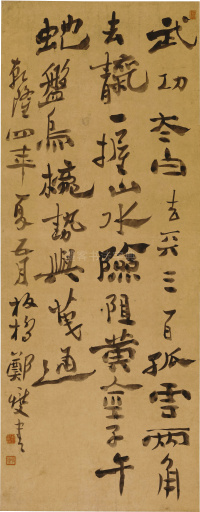 武功太白去兲三百孤雲兩角
去靝一握山水險阻黃金子午
虵盤烏櫳勢與通
乾隆四年夏五月板橋鄭燮書